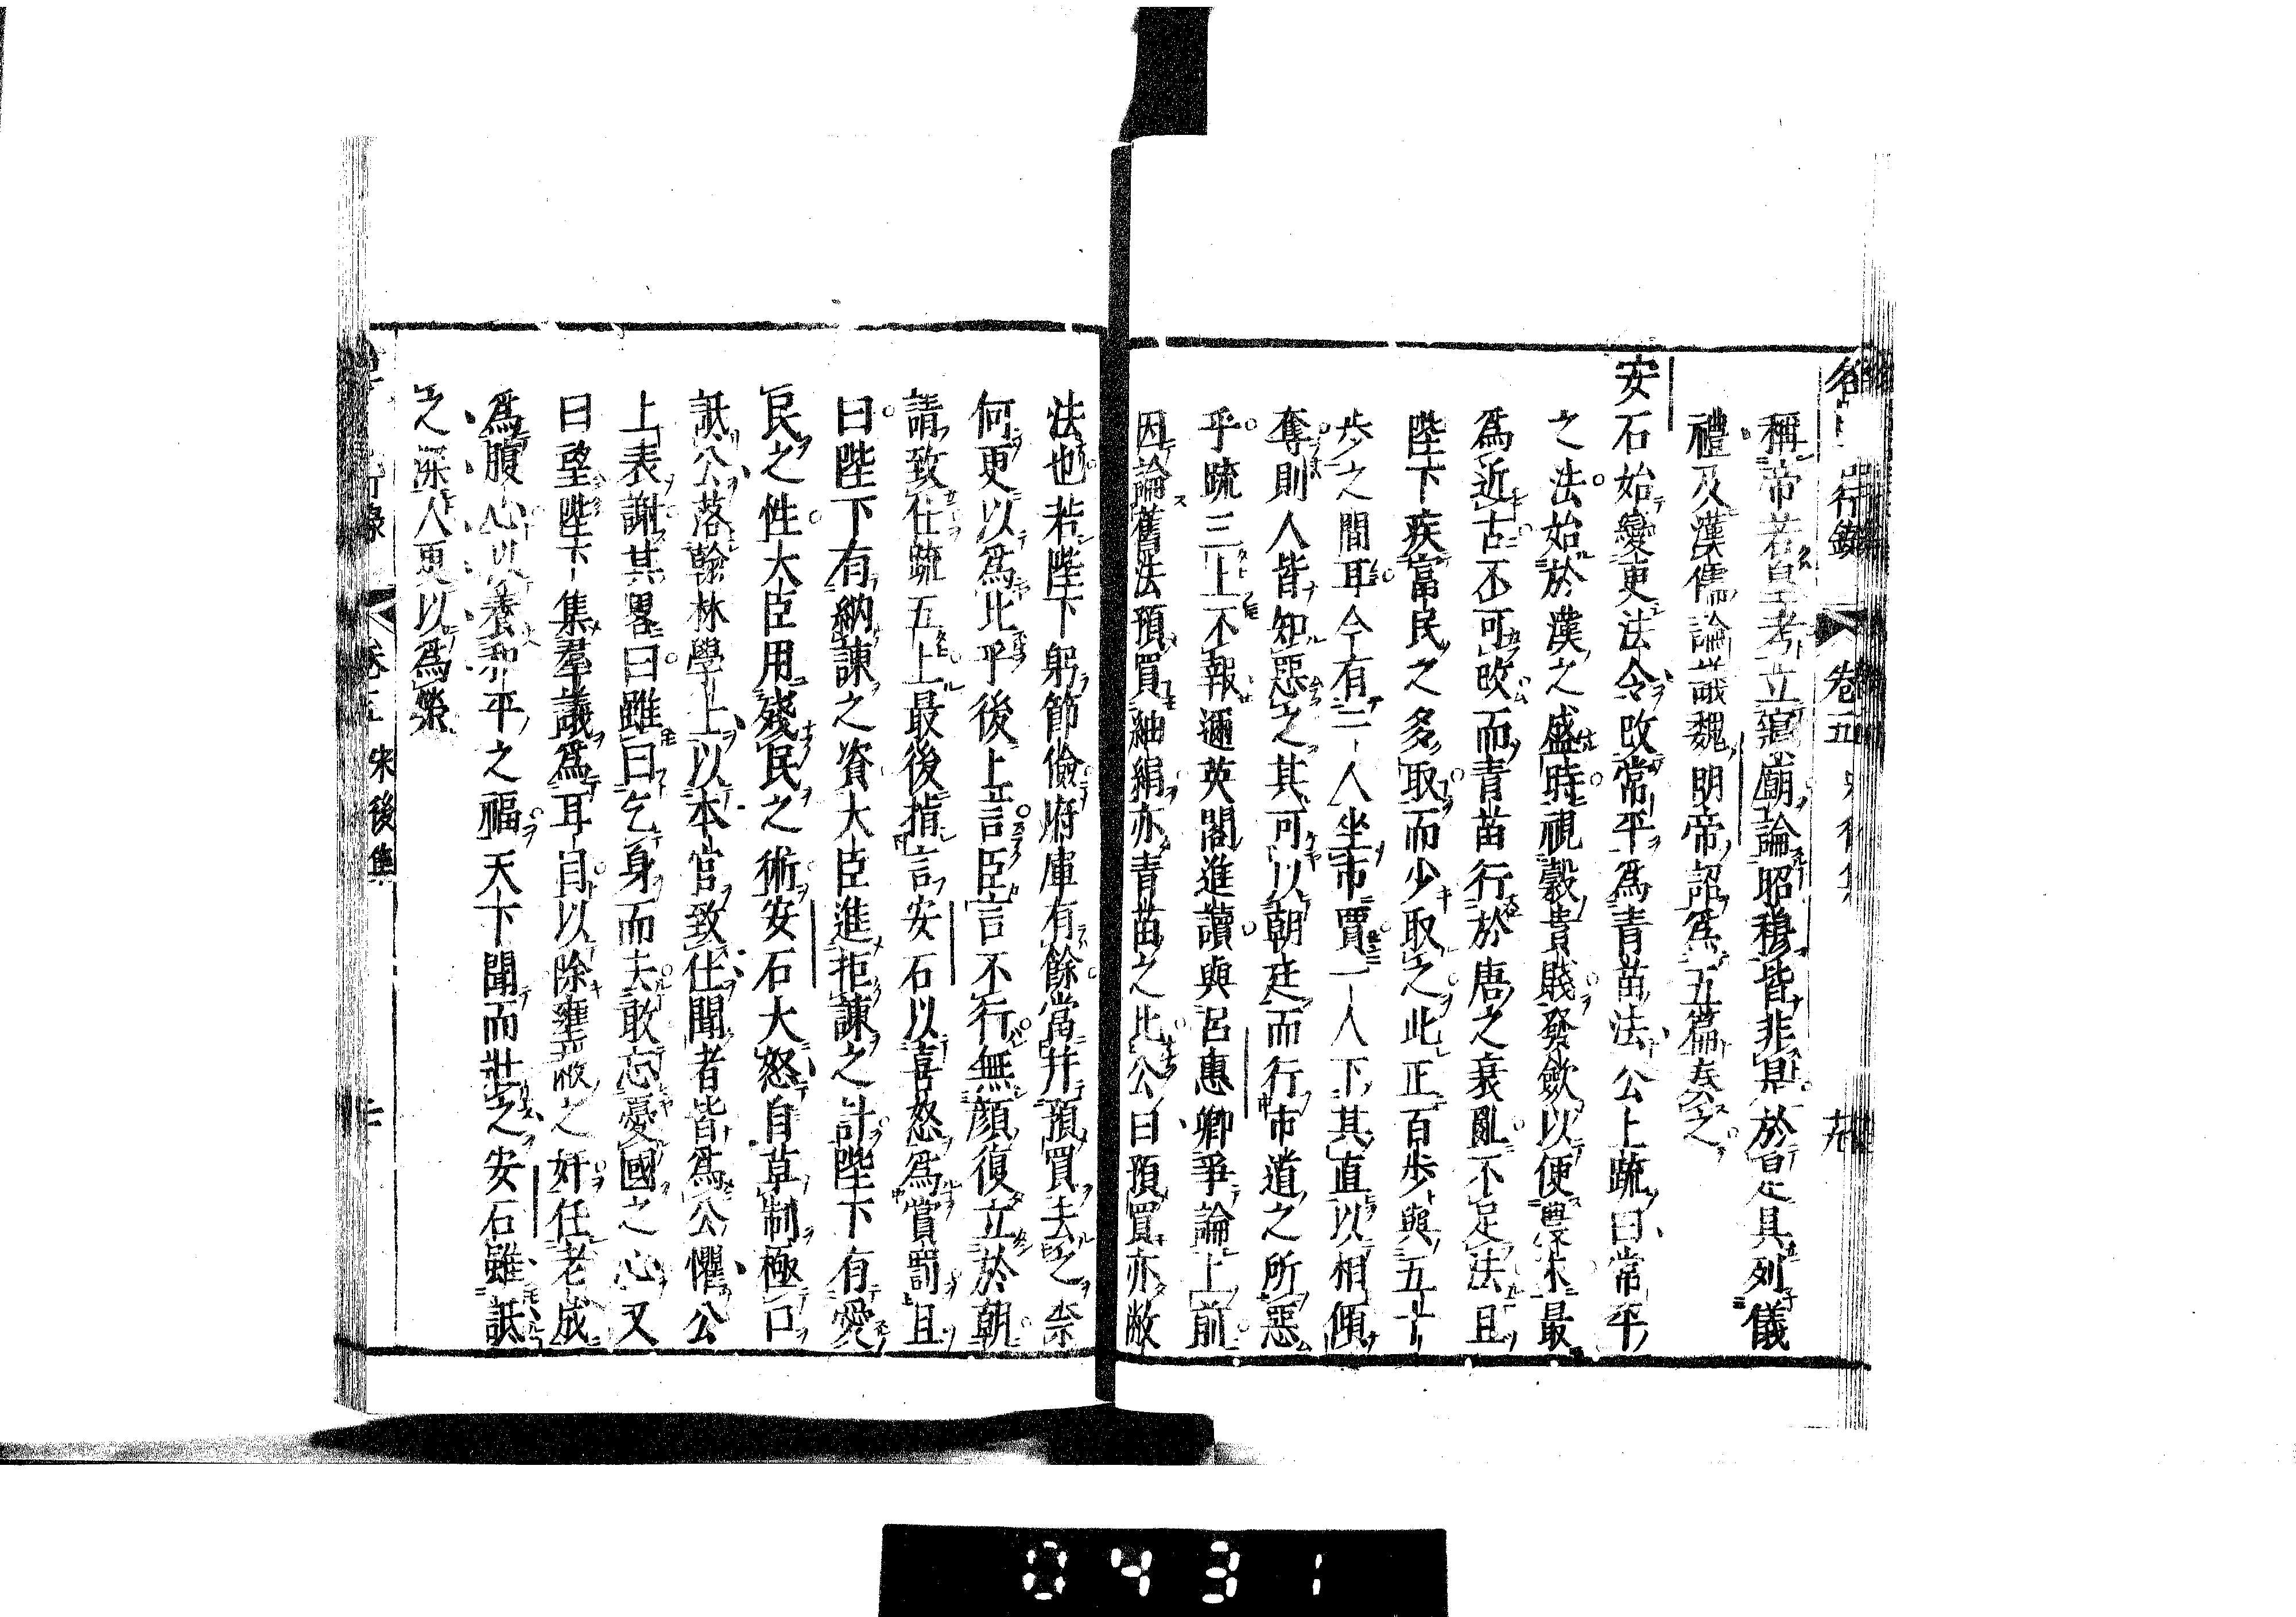 稱帝若皇考立寢廟論昭穆皆非是於是具列儀
禮及漢儒論議魏明帝詔爲五篇奏之
安石始變更法令改常平爲青苗法公上疏曰常平
之法始於漢之盛時視穀貴賤發歛以便農末最
爲近古不可改而青苗行於唐之衰亂不足法且
陛下疾富民之多取而少取之此正百步與五十
步之間耳今有二人坐市賈一人下其直以相傾
奪則人皆知惡之其可以朝廷而行市道之所惡
乎疏三上不報邇英閣進讀與呂惠卿爭論上前
因論舊法預買紬絹亦青苗之比公曰預買亦敝
法也若陛下躬節儉府庫有餘當并預買去之柰
何更以爲比乎後上言臣言不行無顔復立於朝
請致仕疏五上最後指言安石以喜怒爲賞罰且
曰陛下有納諫之資大臣進拒諫之計陛下有愛
民之性大臣用殘民之術安石大怒自草制極口
詆公落翰林學士以本官致仕聞者皆爲公懼公
上表謝其畧曰雖曰乞身而去敢忘憂國之心又
曰望陛下集羣議爲耳目以除壅蔽之奸任老成
爲腹心以養和平之福天下聞而壯之安石雖詆
之深人更以爲榮
卷五 宋後集
0431